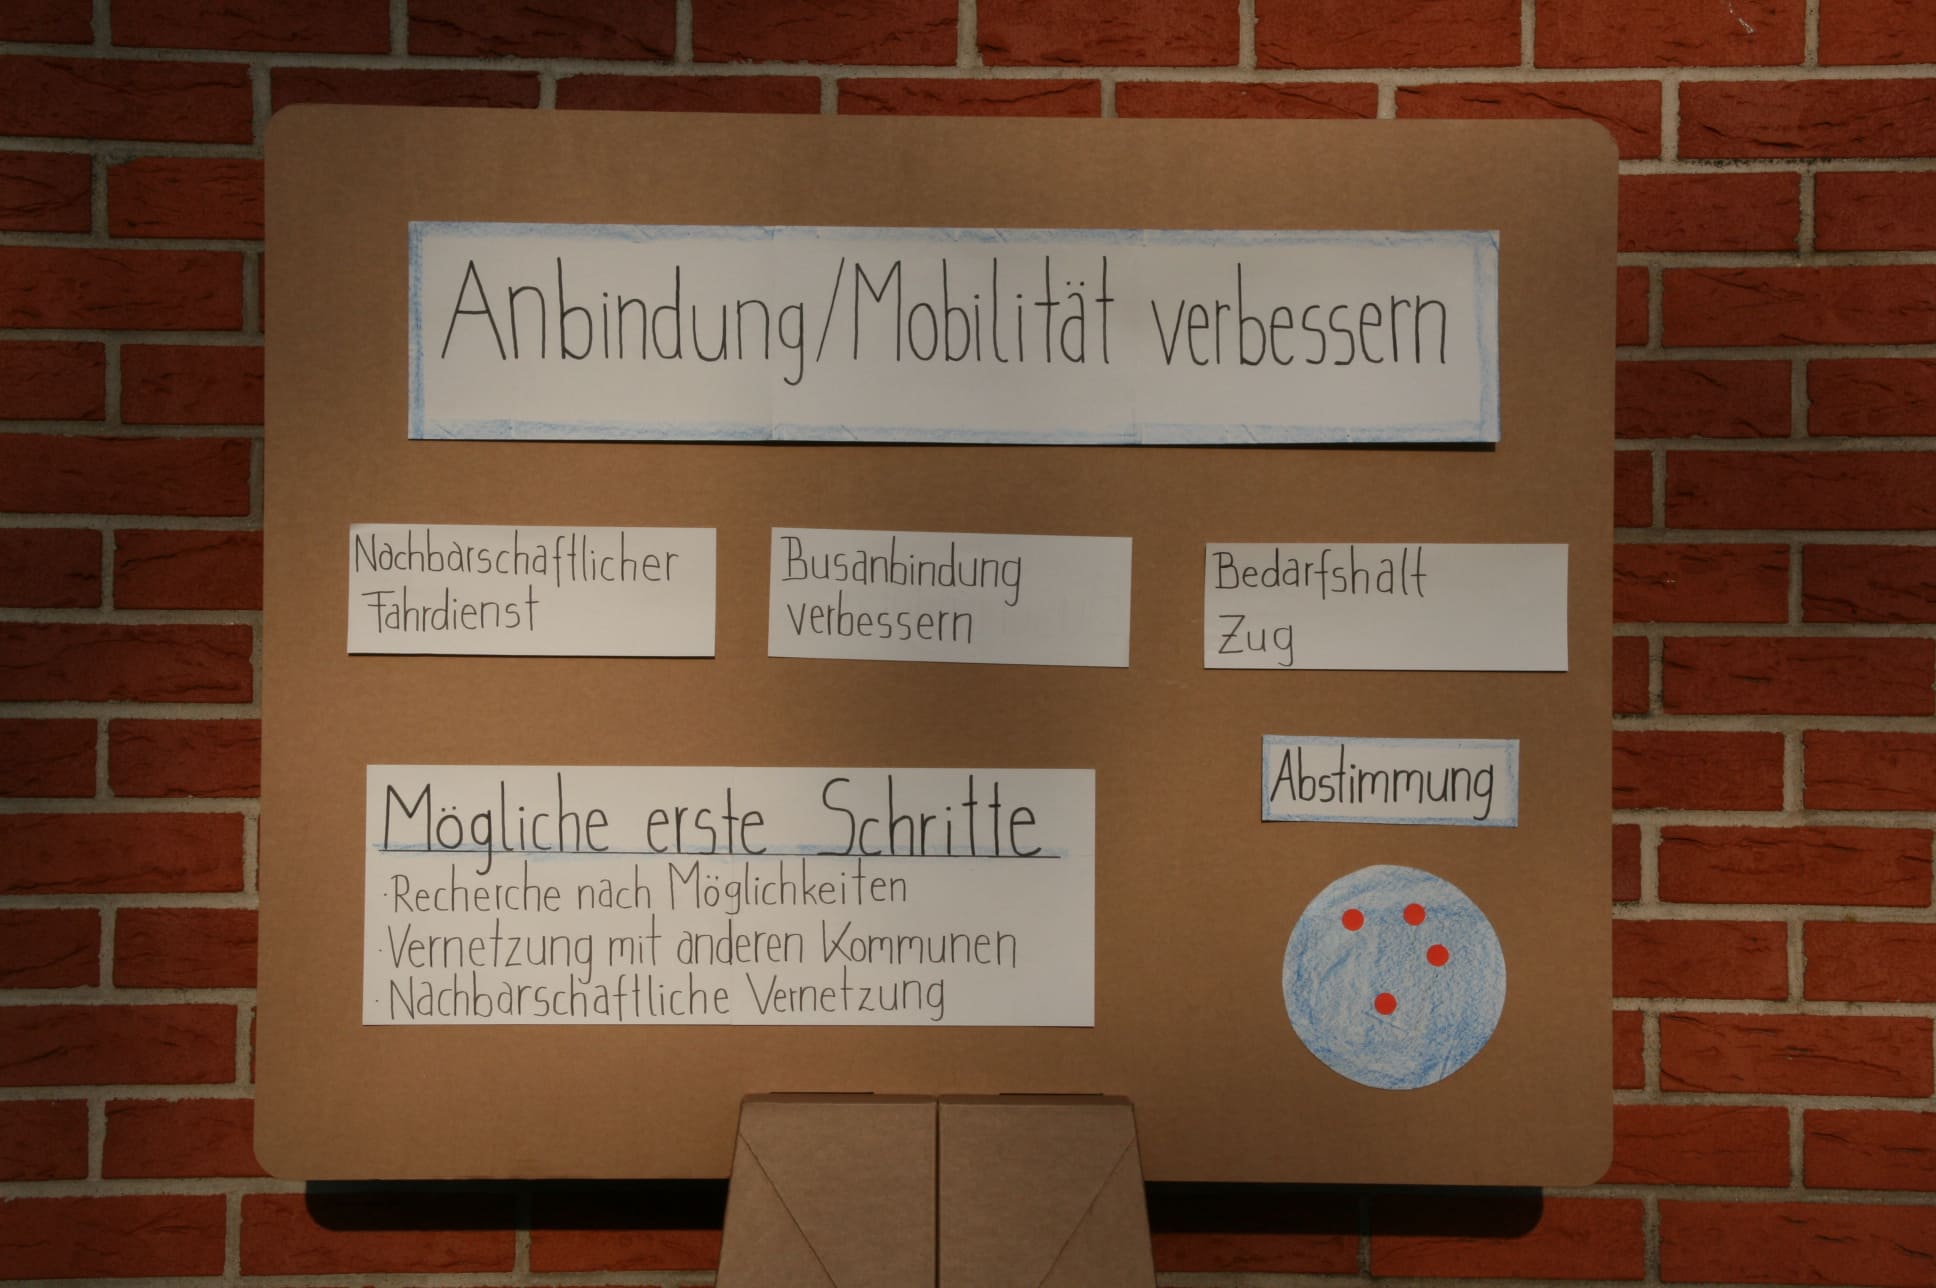 Anbindung/Mobilität verbessern
Nachbarschaftlicher
Fahrdienst
Busanbindung
verbessern
Bedarfshalt
Zug
Mögliche erste Schritte
·Recherche nach Möglichkeiten
·Vernetzung mit anderen Kommunen
·Nachbarschaftliche Vernetzung
Abstimmung